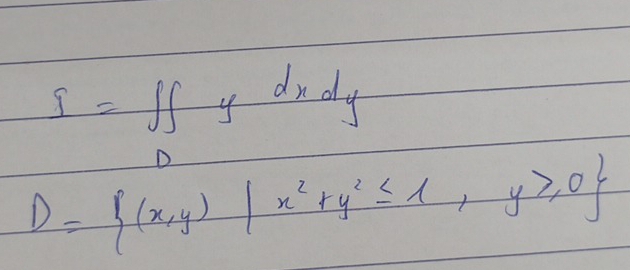 I = ∬_D y dx dy
D = {(x,y) | x² + y² ≤ 1, y ≥ 0}